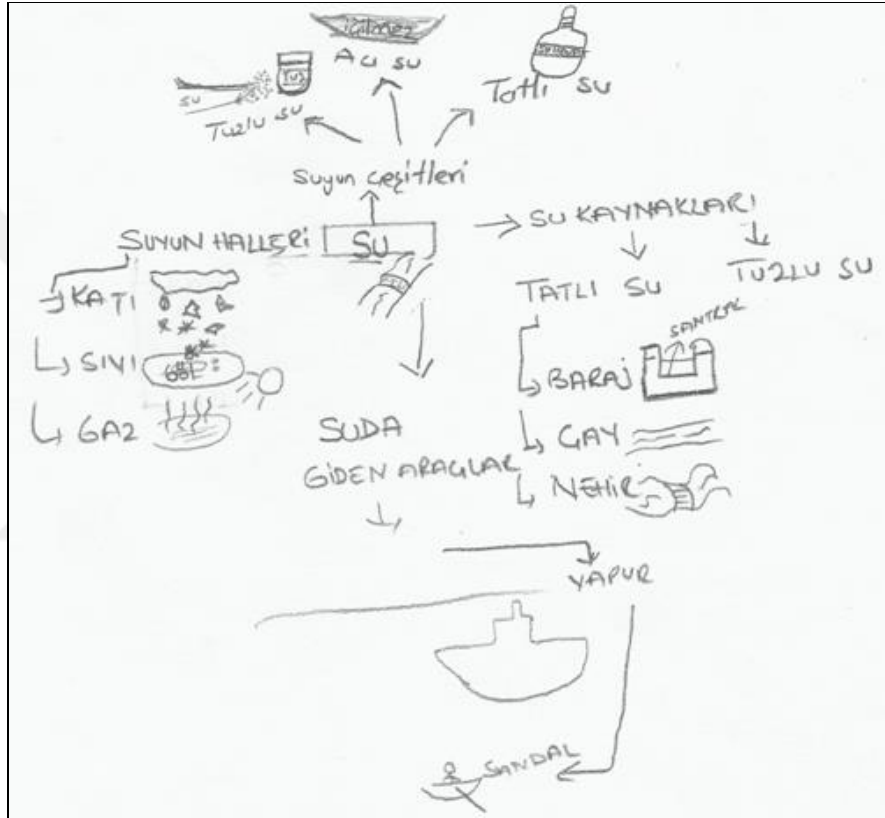 içilmez
Acı su
TUZ
su
Tuzlu su
Tatlı su
Suyun çeşitleri
SUYUN HALLERİ
SU
SU KAYNAKLARI
KATI
SIVI
GAZ
TATLI SU
TUZLU SU
SANTRAL
BARAJ
ÇAY
NEHİR
SUDA
GİDEN ARAÇLAR
VAPUR
SANDAL